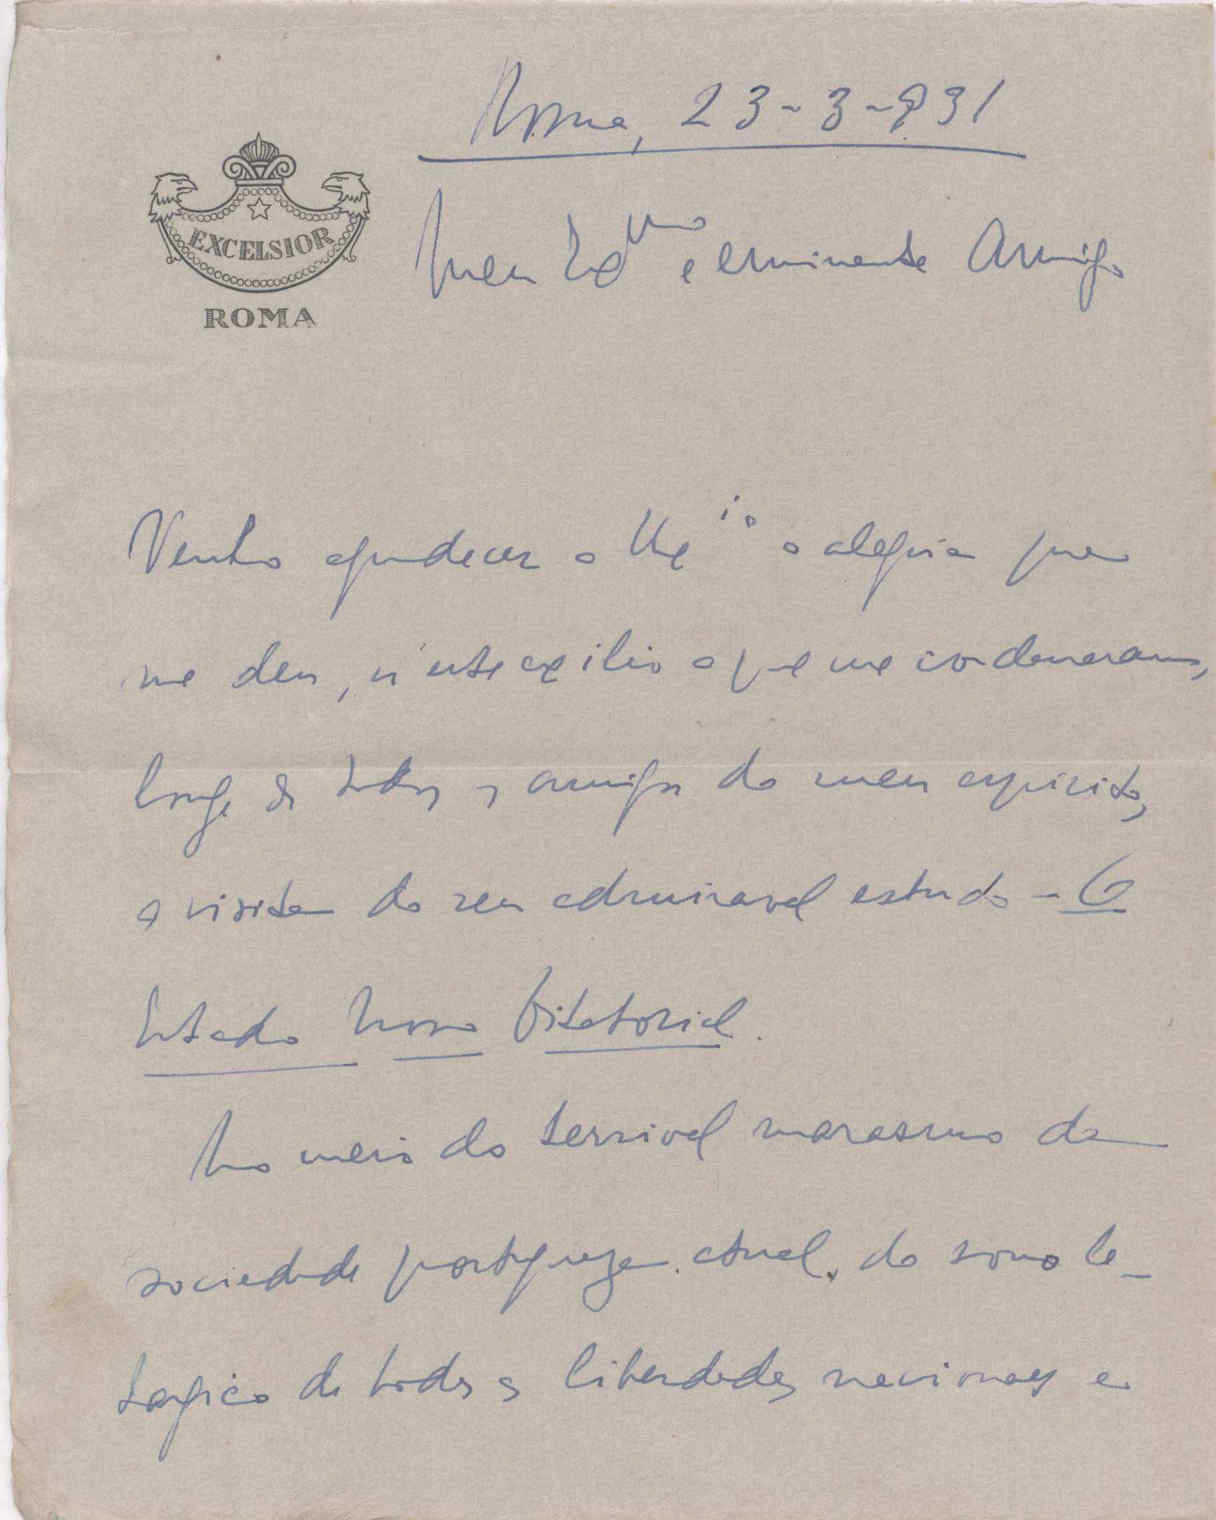 Roma, 23-3-931
EXCELSIOR
ROMA
Meu Ex^mo e eminente Amigo
Venho agradecer a V. Ex^ia a alegria que
me deu, n'este exilio a que me condenaram,
longe de todos os amigos do meu espirito,
a visita do seu admiravel estudo - O
Estado Novo Ditatorial.
No meio do terrivel marasmo da
sociedade portugueza actual, do sono le-
targico de todas as liberdades nacionaes e